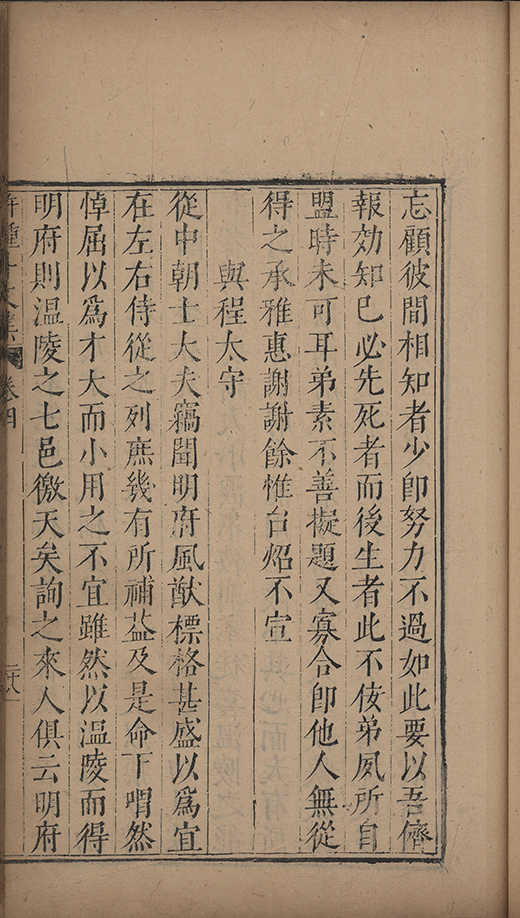 忘顧彼間相知者少卽努力不過如此要以吾儕
報効知已必先死者而後生者此不佞弟夙所自
盟時未可耳弟素不善擬題又寡合卽他人無從
得之承雅惠謝謝餘惟台炤不宣
與程太守
從中朝士大夫竊聞明府風猷標格甚盛以爲宜
在左右侍從之列庶幾有所補益及是命下喟然
悼屈以爲才大而小用之不宜雖然以溫陵而得
明府則溫陵之七邑徼天矣詢之來人俱云明府
卷四
二十八